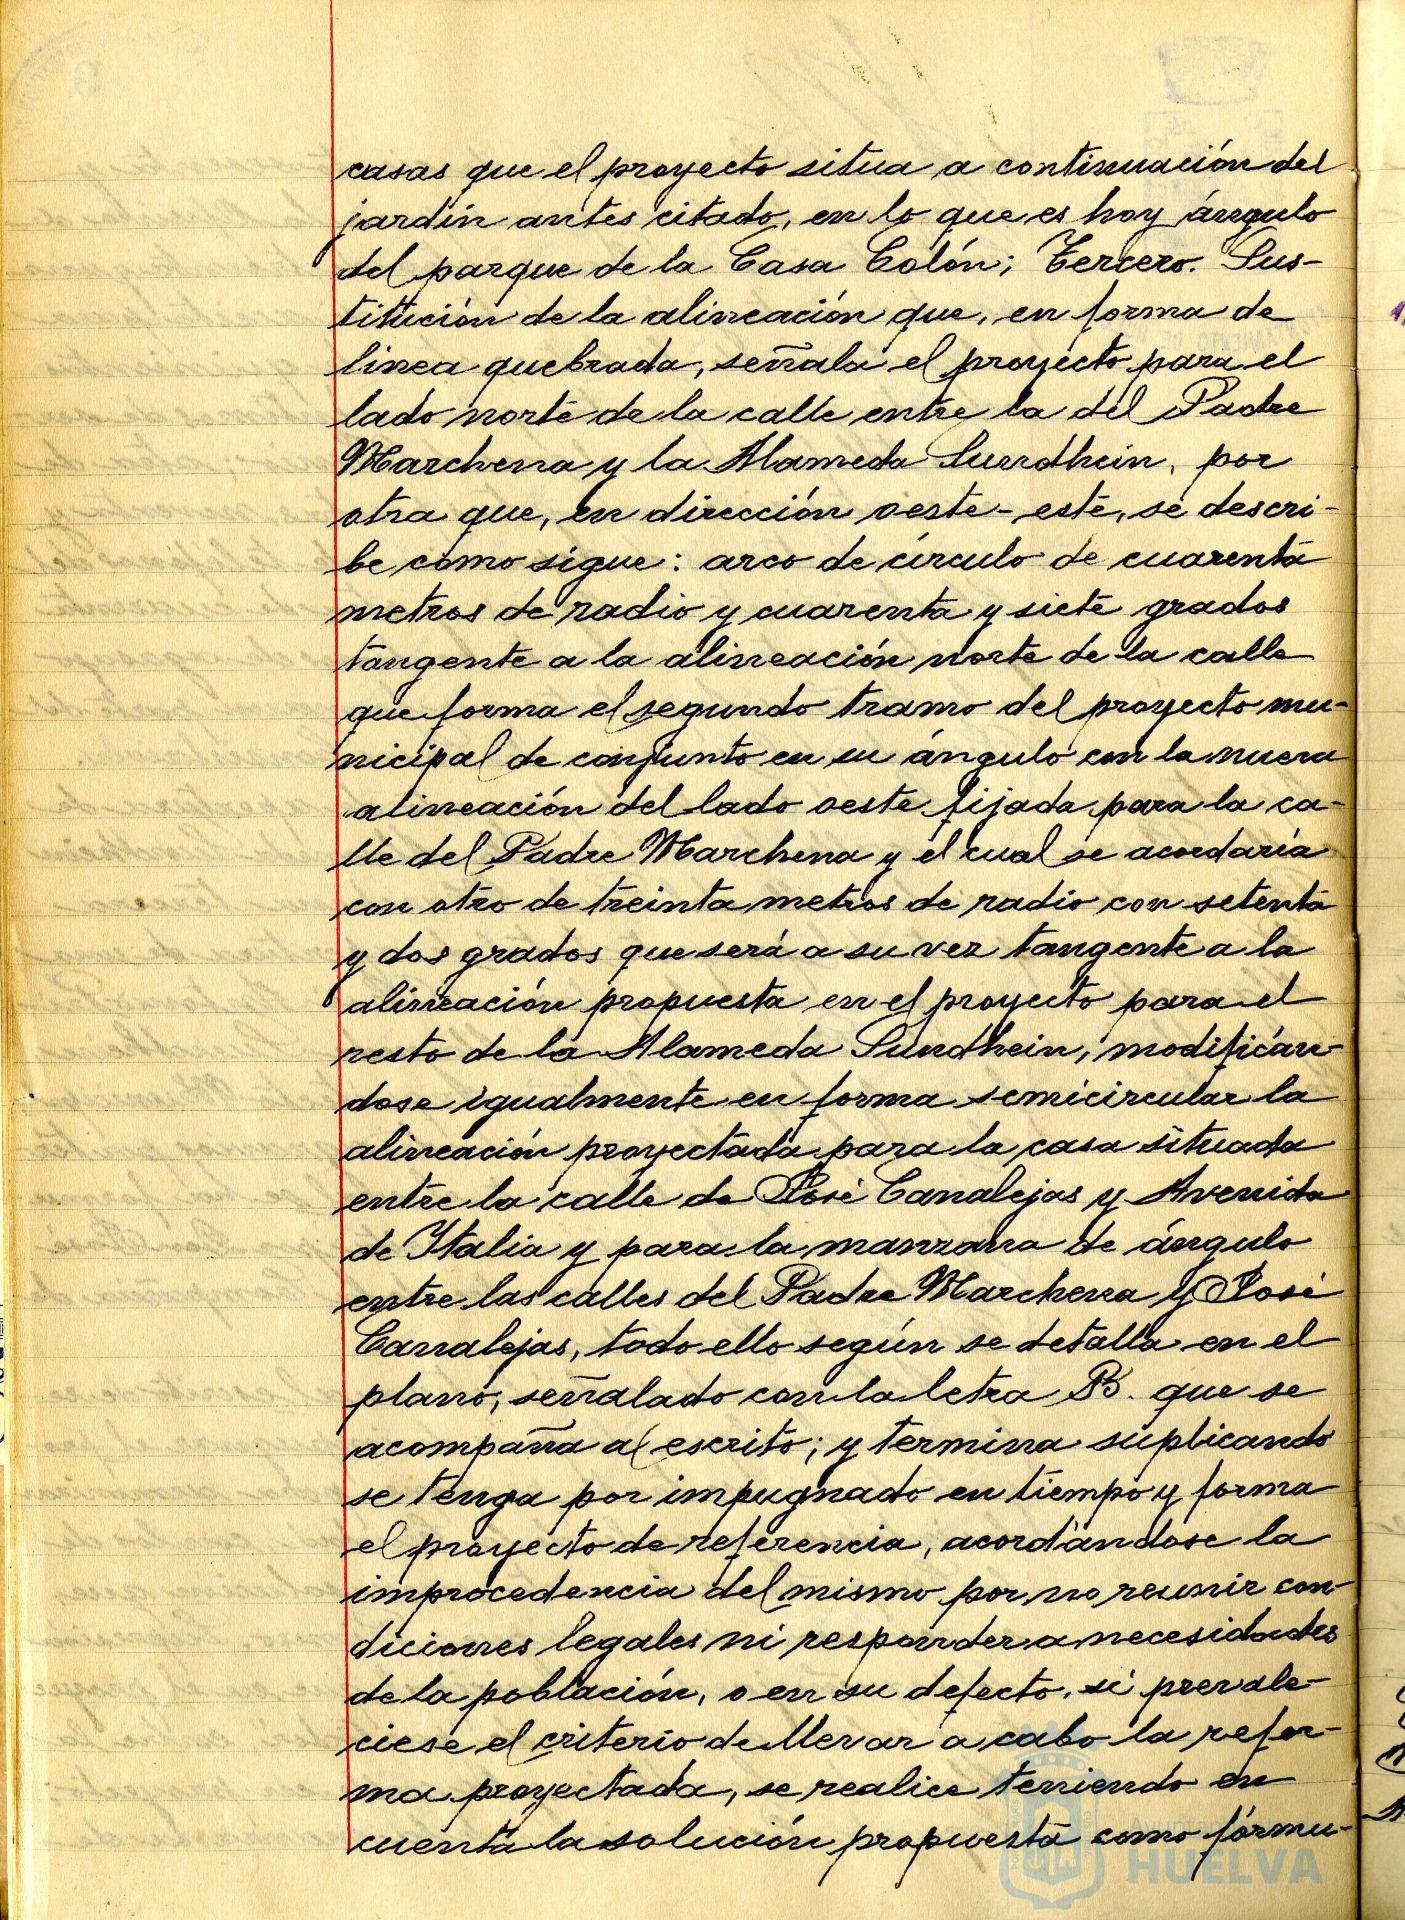 casas que el proyecto situa a continuación del
jardín antes citado, en lo que es hoy ángulo
del parque de la Casa Colón; Tercero. Sus-
titución de la alineación que, en forma de
linea quebrada, señala el proyecto para el
lado norte de la calle entre la del Padre
Marchena y la Alameda Sundhein, por
otra que, en dirección oeste-este, se descri-
be como sigue: arco de círculo de cuarenta
metros de radio y cuarenta y siete grados
tangente a la alineación norte de la calle
que forma el segundo tramo del proyecto mu-
nicipal de conjunto en su ángulo con la nueva
alineación del lado oeste fijada para la ca-
lle del Padre Marchena y el cual se acordaría
con otro de treinta metros de radio con setenta
y dos grados que será a su vez tangente a la
alineación propuesta en el proyecto para el
resto de la Alameda Sundhein, modificán-
dose igualmente en forma semicircular la
alineación proyectada para la casa situada
entre la calle de José Canalejas y Avenida
de Italia y para la manzana de ángulo
entre las calles del Padre Marchena y José
Canalejas, todo ello según se detalla en el
plano, señalado con la letra B. que se
acompaña al escrito; y termina suplicando
se tenga por impugnado en tiempo y forma
el proyecto de referencia, acordándose la
improcedencia del mismo por no reunir con-
diciones legales ni responder a necesidades
de la población, o en su defecto, si prevale-
ciese el criterio de llevar a cabo la refor-
ma proyectada, se realice teniendo en
cuenta la solución propuesta como fórmu-
HUELVA